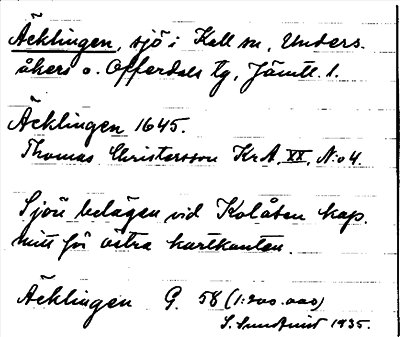 Äcklingen, sjö i Kall sn, Unders-
åkers o. Offerdals tg, Jämtl. l.
Äcklingen 1645.
Thomas Christersson Kr.A. XX, N:o 4.
Sjön belägen vid Kolåsen kap.
mitt för östra kartkanten.
Äcklingen G. 58 (1:200.000)
S. Sundqvist 1935.